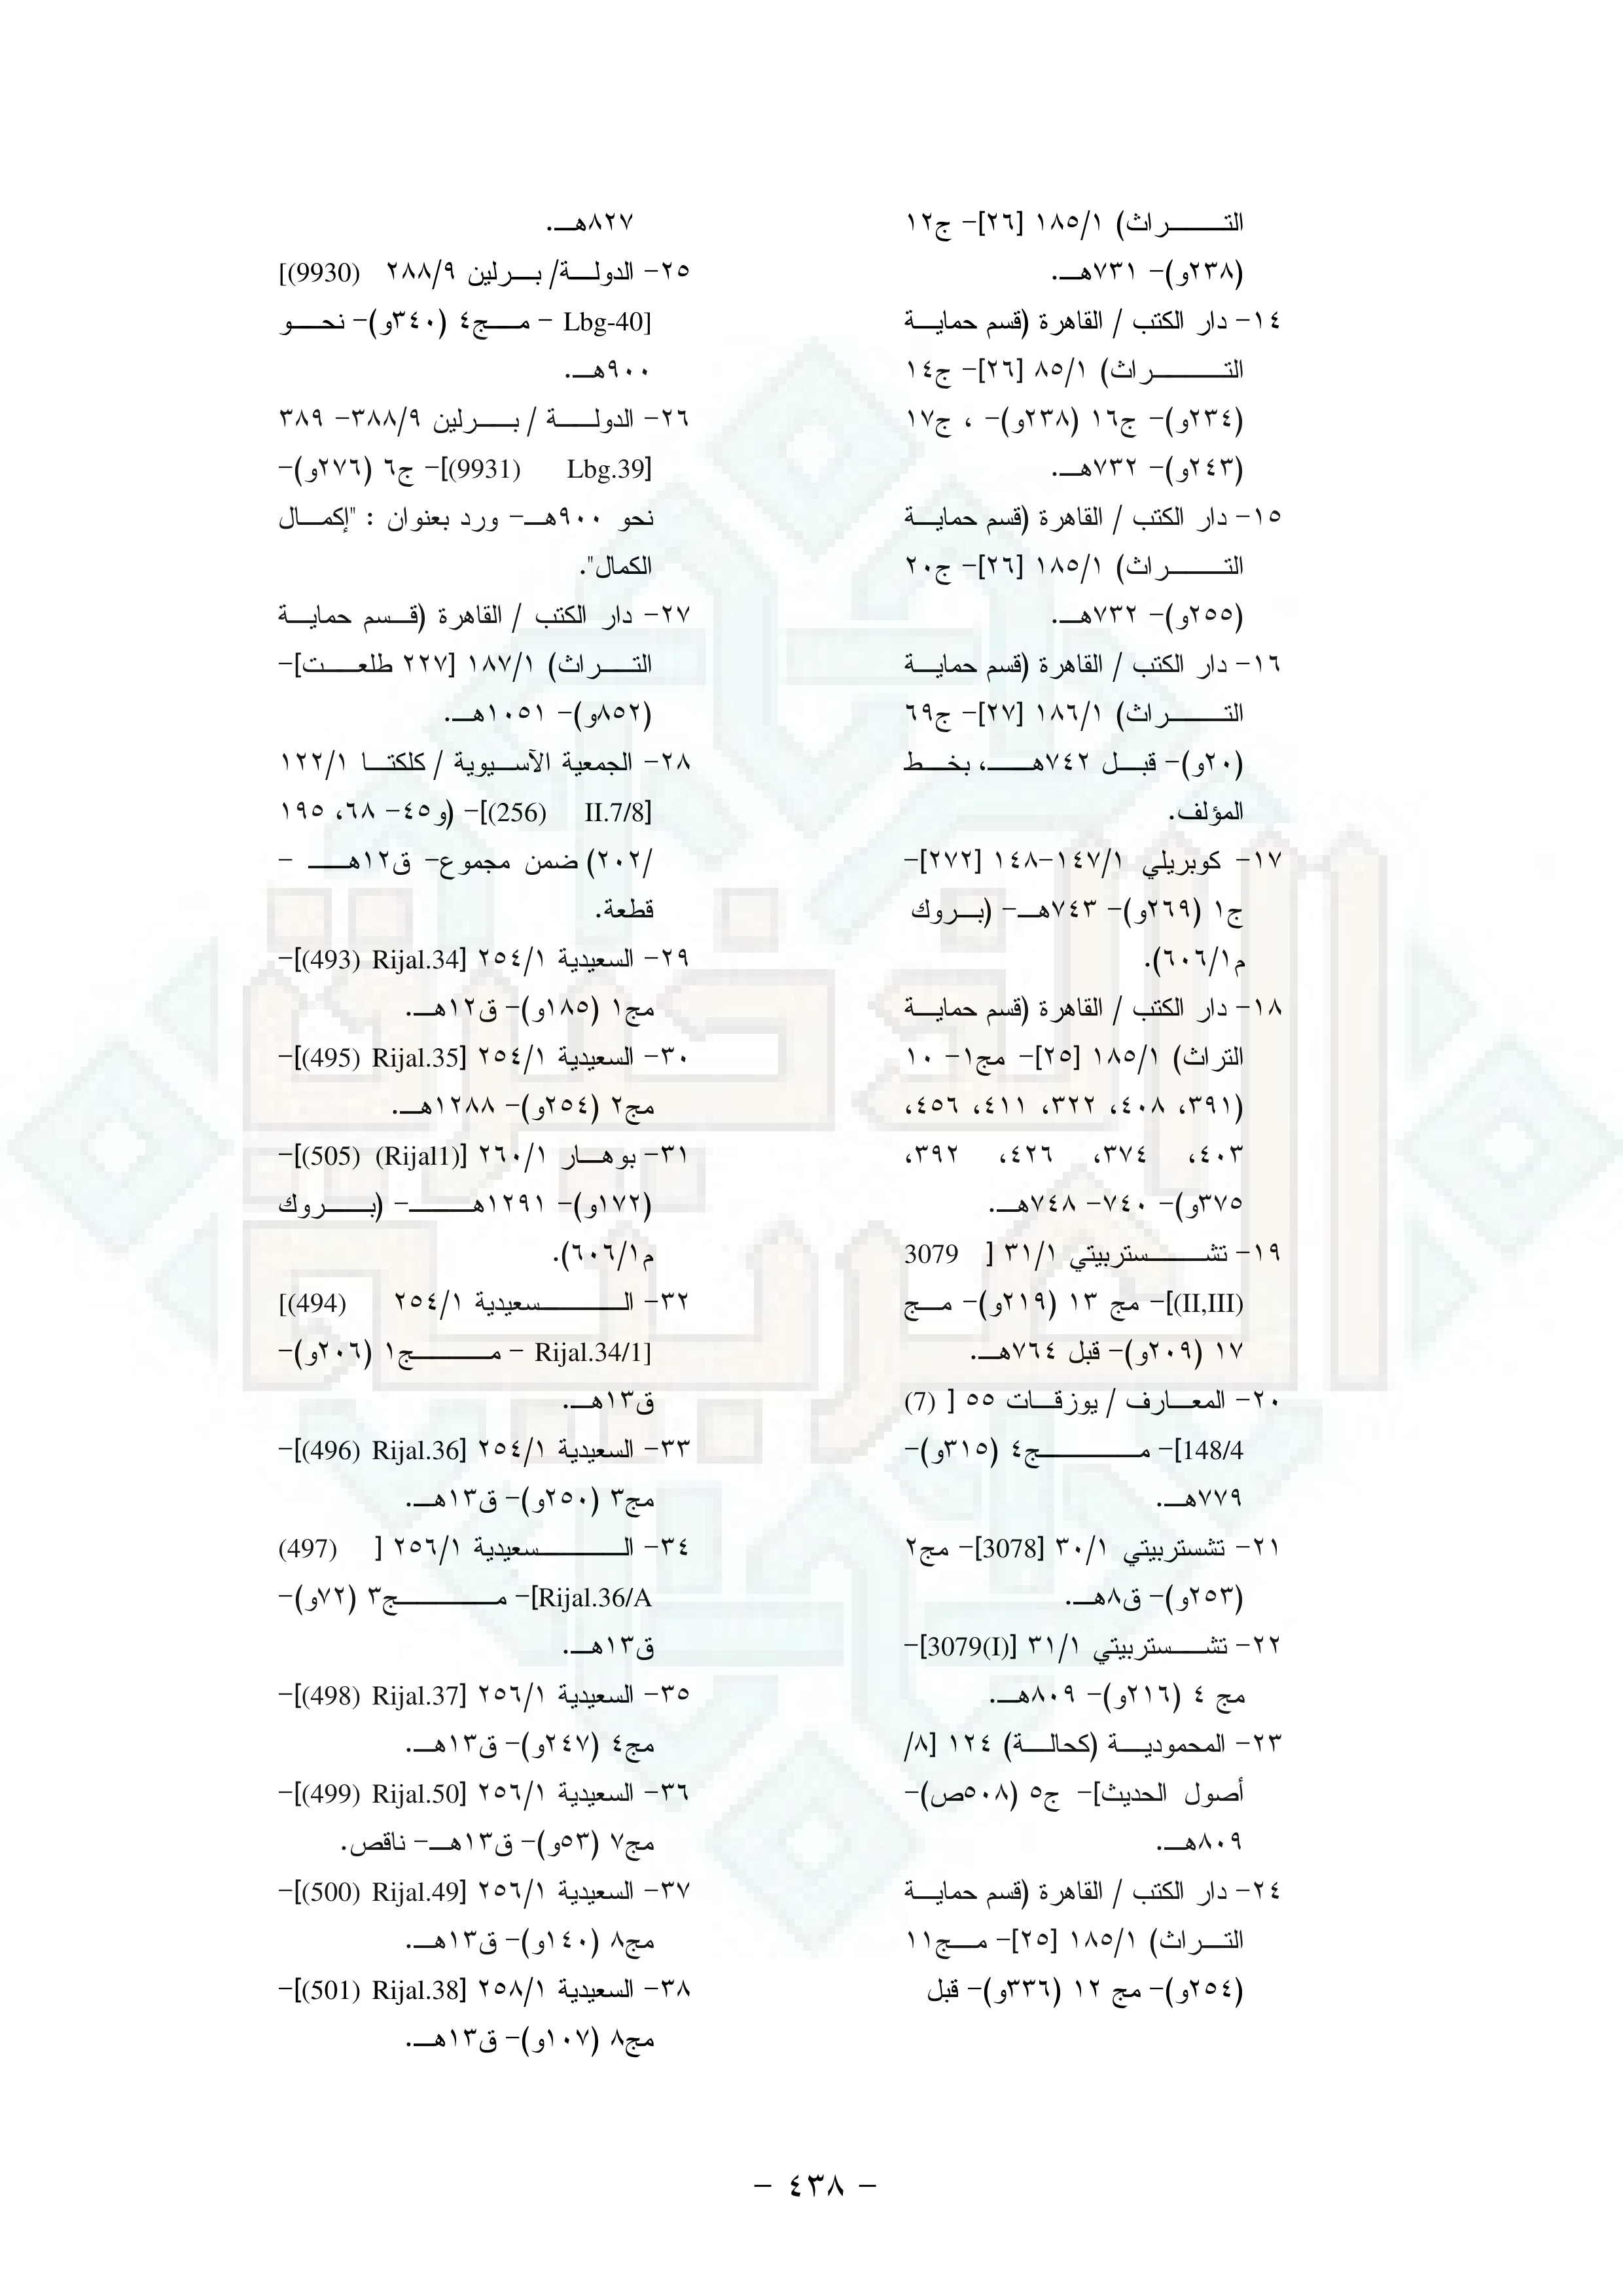 التراث) ١/١٨٥ [٢٦]- ج١٢
(٢٣٨و)- ٧٣١هـ.
١٤- دار الكتب / القاهرة (قسم حماية
التراث) ٨٥/١ [٢٦]- ج١٤
(٢٣٤و)- ج١٦ (٢٣٨و)- ، ج١٧
(٢٤٣و)- ٧٣٢هـ.
١٥- دار الكتب / القاهرة (قسم حماية
التراث) ١٨٥/١ [٢٦]- ج٢٠
(٢٥٥و)- ٧٣٢هـ.
١٦- دار الكتب / القاهرة (قسم حماية
التراث) ١٨٦/١ [٢٧]- ج٦٩
(٢٠و)- قبل ٧٤٢هـ، بخط
المؤلف.
١٧- كوبريلي ١٤٧/١-١٤٨ [٢٧٢]-
ج١ (٢٦٩و)- ٧٤٣هـ- (بروك
م٦٠٦/١).
١٨- دار الكتب / القاهرة (قسم حماية
التراث) ١٨٥/١ [٢٥]- مج١- ١٠
(٣٩١، ٤٠٨، ٣٢٢، ٤١١، ٤٥٦،
٤٠٣، ٣٧٤، ٤٢٦، ٣٩٢،
٣٧٥و)- ٧٤٠- ٧٤٨هـ.
١٩- تشستربيتي ٣١/١ [ 3079
(II,III)]- مج ١٣ (٢١٩و)- مج
١٧ (٢٠٩و)- قبل ٧٦٤هـ.
٢٠- المعارف / يوزقات ٥٥ [ (7)
148/4]- مج٤ (٣١٥و)-
٧٧٩هـ.
٢١- تشستربيتي ٣٠/١ [3078]- مج٢
(٢٥٣و)- ق٨هـ.
٢٢- تشستربيتي ٣١/١ [3079(I)]-
مج ٤ (٢١٦و)- ٨٠٩هـ.
٢٣- المحمودية (كحالة) ١٢٤ [٨/
أصول الحديث]- ج٥ (٥٠٨ص)-
٨٠٩هـ.
٢٤- دار الكتب / القاهرة (قسم حماية
التراث) ١٨٥/١ [٢٥]- مج١١
(٢٥٤و)- مج ١٢ (٣٣٦و)- قبل
٨٢٧هـ.
٢٥- الدولة/ برلين ٢٨٨/٩ (9930)]
[Lbg-40 - مج٤ (٣٤٠و)- نحو
٩٠٠هـ.
٢٦- الدولة / برلين ٣٨٨/٩- ٣٨٩
[Lbg.39 (9931)]- ج٦ (٢٧٦و)-
نحو ٩٠٠هـ- ورد بعنوان : "إكمال
الكمال".
٢٧- دار الكتب / القاهرة (قسم حماية
التراث) ١٨٧/١ [٢٢٧ طلعت]-
(٨٥٢و)- ١٠٥١هـ.
٢٨- الجمعية الآسيوية / كلكتا ١٢٢/١
[II.7/8 (256)]- (و٤٥- ٦٨، ١٩٥
/٢٠٢) ضمن مجموع- ق١٢هـ -
قطعة.
٢٩- السعيدية ٢٥٤/١ [Rijal.34 (493)]-
مج١ (١٨٥و)- ق١٢هـ.
٣٠- السعيدية ٢٥٤/١ [Rijal.35 (495)]-
مج٢ (٢٥٤و)- ١٢٨٨هـ.
٣١- بوهار ٢٦٠/١ [(Rijal1) (505)]-
(١٧٢و)- ١٢٩١هـ- (بروك
م٦٠٦/١).
٣٢- السعيدية ٢٥٤/١ (494)]
[Rijal.34/1 - مج١ (٢٠٦و)-
ق١٣هـ.
٣٣- السعيدية ٢٥٤/١ [Rijal.36 (496)]-
مج٣ (٢٥٠و)- ق١٣هـ.
٣٤- السعيدية ٢٥٦/١ [ (497)
Rijal.36/A]- مج٣ (٧٢و)-
ق١٣هـ.
٣٥- السعيدية ٢٥٦/١ [Rijal.37 (498)]-
مج٤ (٢٤٧و)- ق١٣هـ.
٣٦- السعيدية ٢٥٦/١ [Rijal.50 (499)]-
مج٧ (٥٣و)- ق١٣هـ- ناقص.
٣٧- السعيدية ٢٥٦/١ [Rijal.49 (500)]-
مج٨ (١٤٠و)- ق١٣هـ.
٣٨- السعيدية ٢٥٨/١ [Rijal.38 (501)]-
مج٨ (١٠٧و)- ق١٣هـ.
- ٤٣٨ -